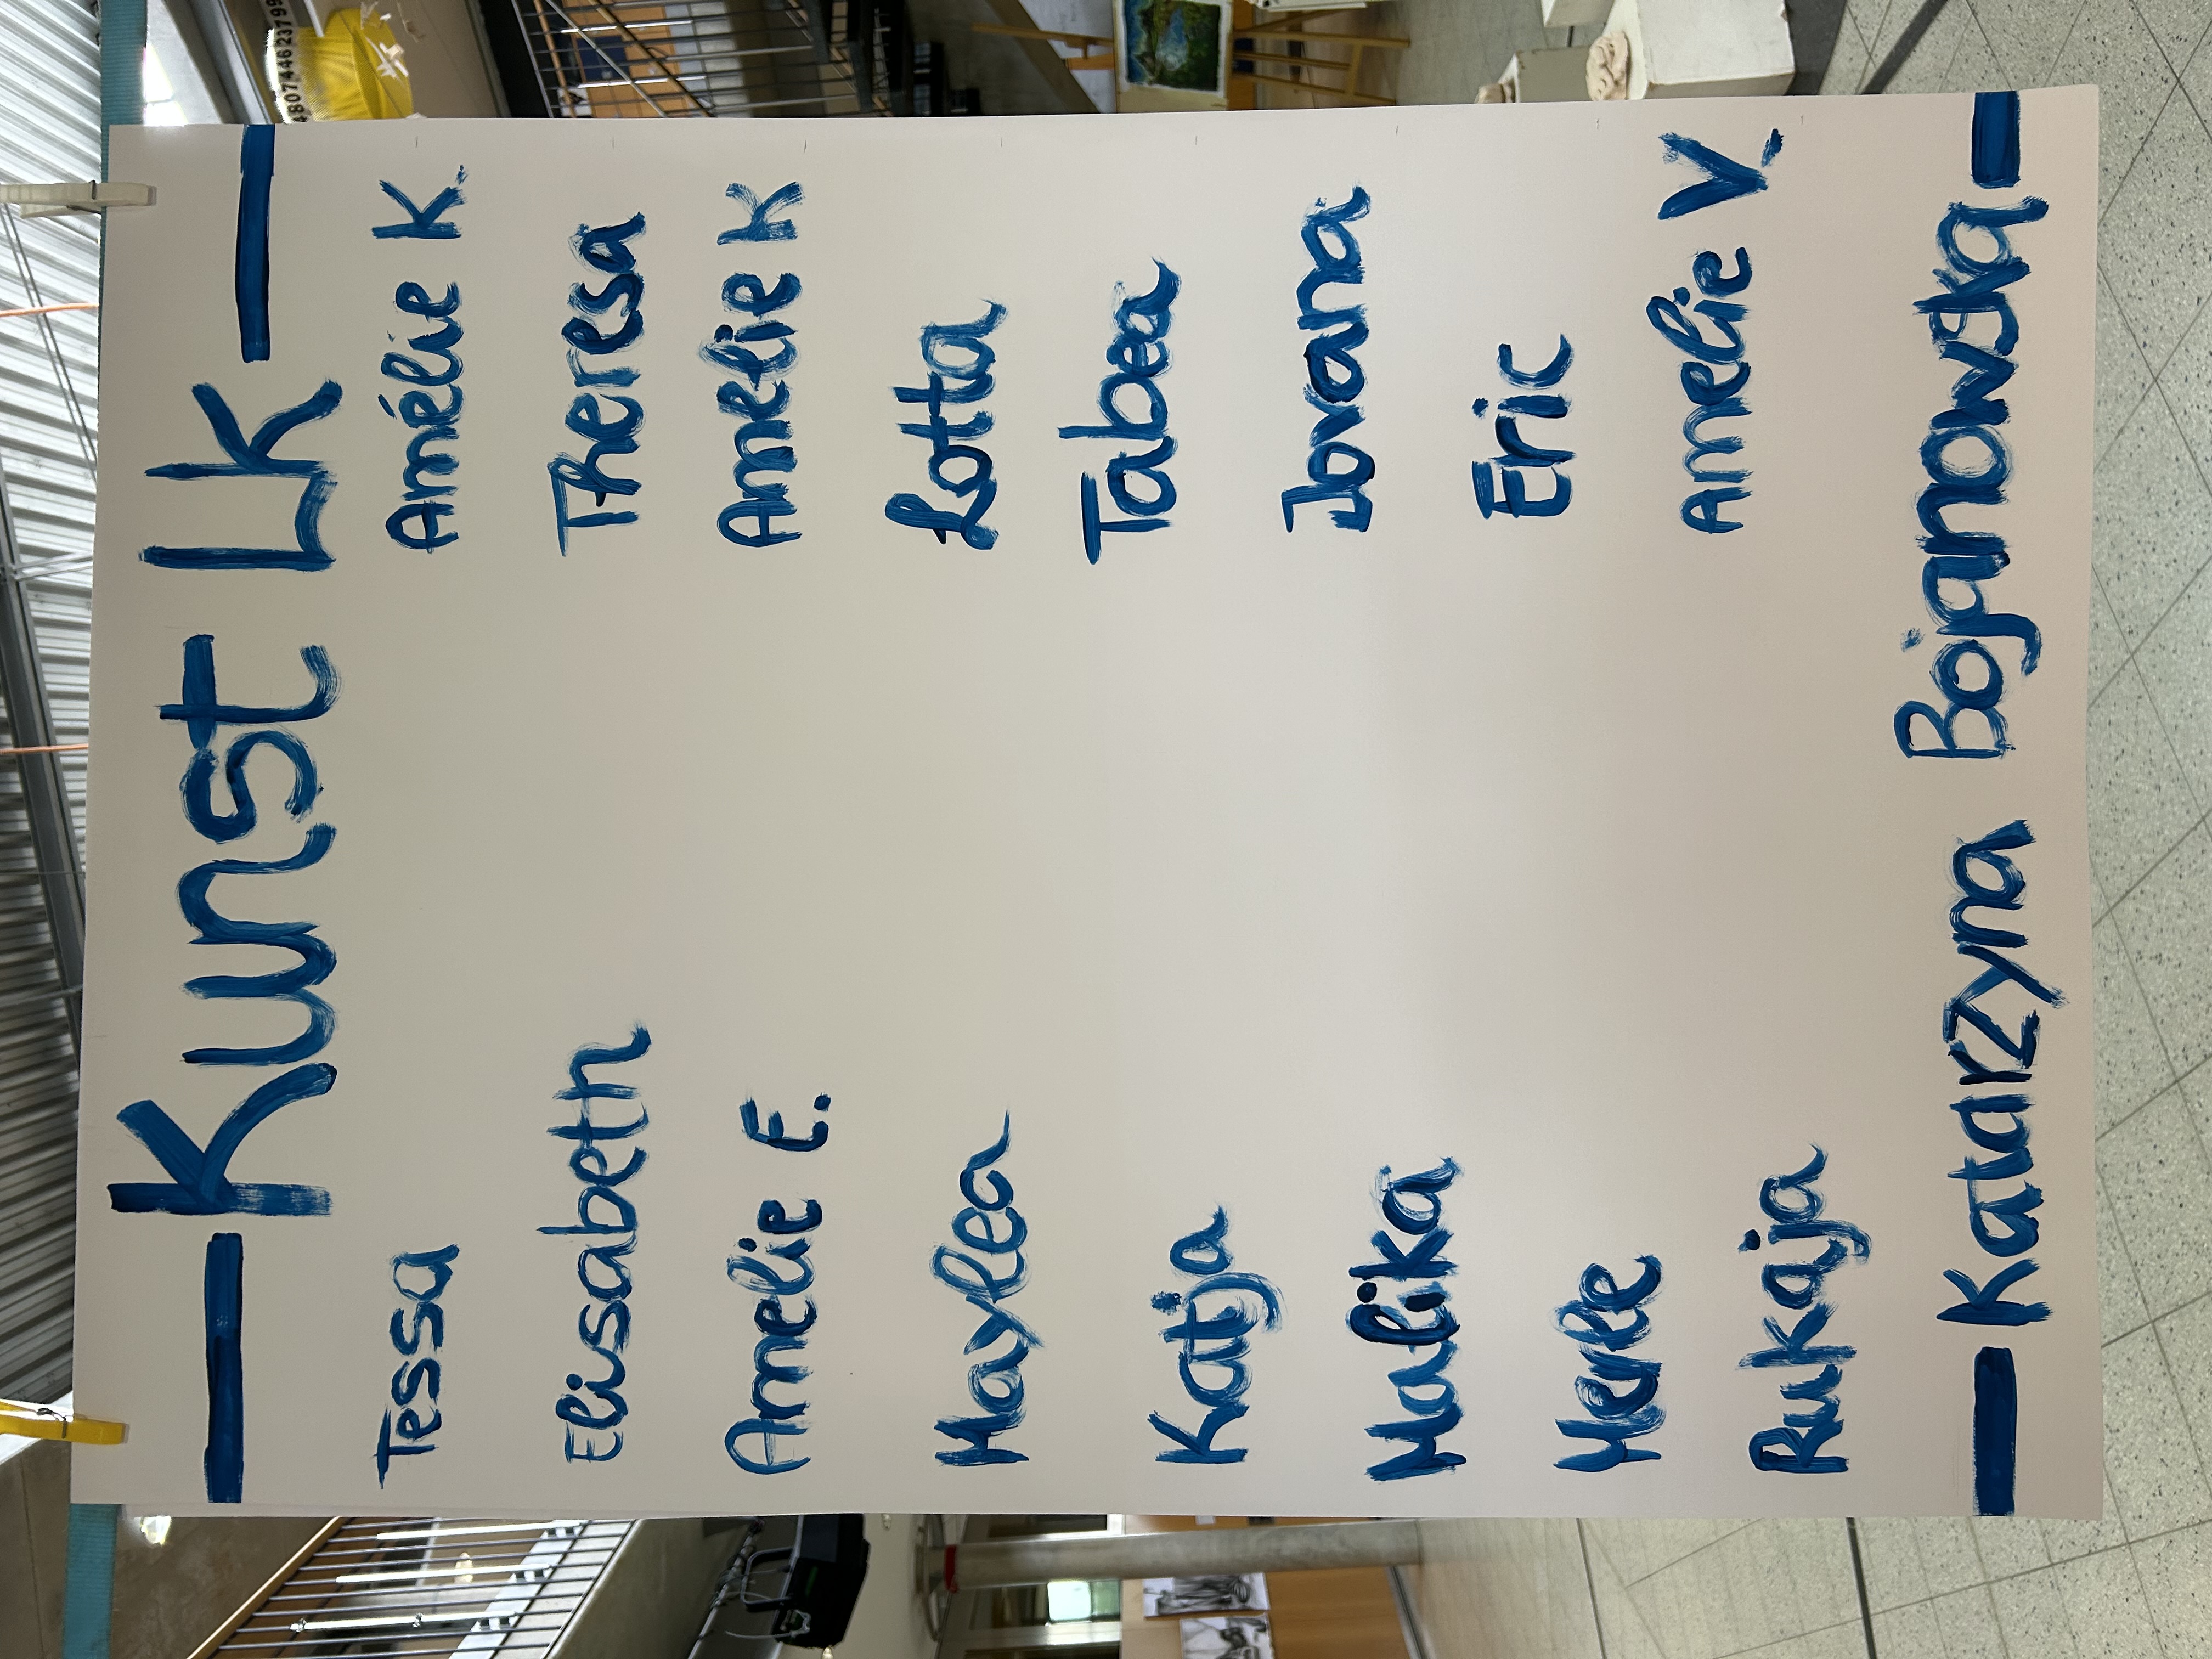 Kunst LK
Tessa
Elisabeth
Amelie E.
Haylea
Katja
Malika
Merle
Rukaja
Amélie K.
Theresa
Amelie K
Lotta
Tabea
Jovana
Eric
Amelie V.
Katarzyna Bojanowska